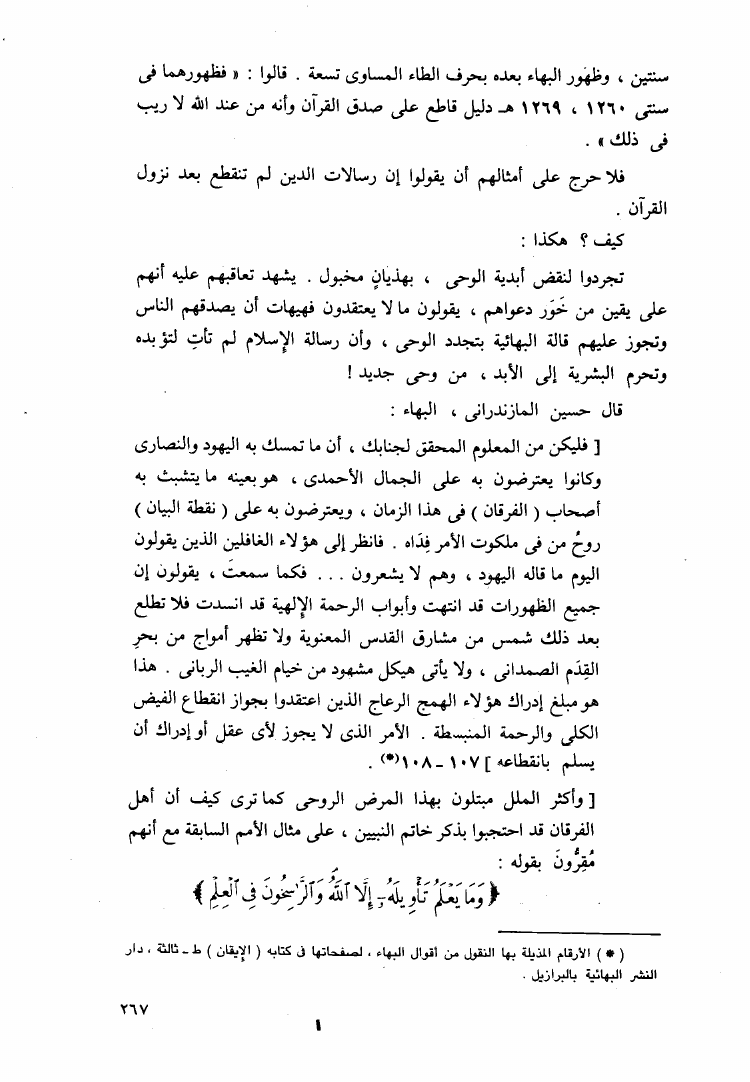 سنتين ، وظهور البهاء بعده بحرف الطاء المساوى تسعة . قالوا : « فظهورهما فى
سنتى ١٢٦٠ ، ١٢٦٩ هـ دليل قاطع على صدق القرآن وأنه من عند الله لا ريب
فى ذلك » .
فلا حرج على أمثالهم أن يقولوا إن رسالات الدين لم تنقطع بعد نزول
القرآن .
كيف ؟ هكذا :
تجردوا لنقض أبدية الوحى ، بهذيانٍ مخبول . يشهد تعاقبهم عليه أنهم
على يقين من خَوَر دعواهم ، يقولون ما لا يعتقدون فهيهات أن يصدقهم الناس
وتجوز عليهم قالة البهائية بتجدد الوحى ، وأن رسالة الإسلام لم تأتِ لتؤبده
وتحرم البشرية إلى الأبد ، من وحى جديد !
قال حسين المازندرانى ، البهاء :
[ فليكن من المعلوم المحقق لجنابك ، أن ما تمسك به اليهود والنصارى
وكانوا يعترضون به على الجمال الأحمدى ، هو بعينه ما يتشبث به
أصحاب ( الفرقان ) فى هذا الزمان ، ويعترضون به على ( نقطة البيان )
روحُ من فى ملكوت الأمر فِدَاه . فانظر إلى هؤلاء الغافلين الذين يقولون
اليوم ما قاله اليهود ، وهم لا يشعرون ... فكما سمعتَ ، يقولون إن
جميع الظهورات قد انتهت وأبواب الرحمة الإلهية قد انسدت فلا تطلع
بعد ذلك شمس من مشارق القدس المعنوية ولا تظهر أمواج من بحرِ
القِدَم الصمدانى ، ولا يأتى هيكل مشهود من خيام الغيب الربانى . هذا
هو مبلغ إدراك هؤلاء الهمج الرعاج الذين اعتقدوا بجواز انقطاع الفيض
الكلى والرحمة المنبسطة . الأمر الذى لا يجوز لأى عقل أو إدراك أن
يسلم بانقطاعه ] ١٠٧ ـ ١٠٨(*) .
[ وأكثر الملل مبتلون بهذا المرض الروحى كما ترى كيف أن أهل
الفرقان قد احتجبوا بذكر خاتم النبيين ، على مثال الأمم السابقة مع أنهم
مُقِرُّونَ بقوله :
﴿ وَمَا يَعْلَمُ تَأْوِيلَهُ إِلَّا ٱللَّهُ وَٱلرَّاسِخُونَ فِى ٱلْعِلْمِ ﴾
( * ) الأرقام المذيلة بها النقول من أقوال البهاء ، لصفحاتها فى كتابه ( الإيقان ) ط ـ ثالثة ، دار
النشر البهائية بالبرازيل .
٢٦٧